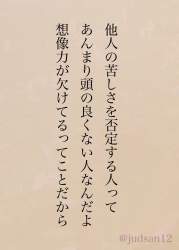 他人の苦しさを否定する人って
あんまり頭の良くない人なんだよ
想像力が欠けてるってことだから
@judsan12